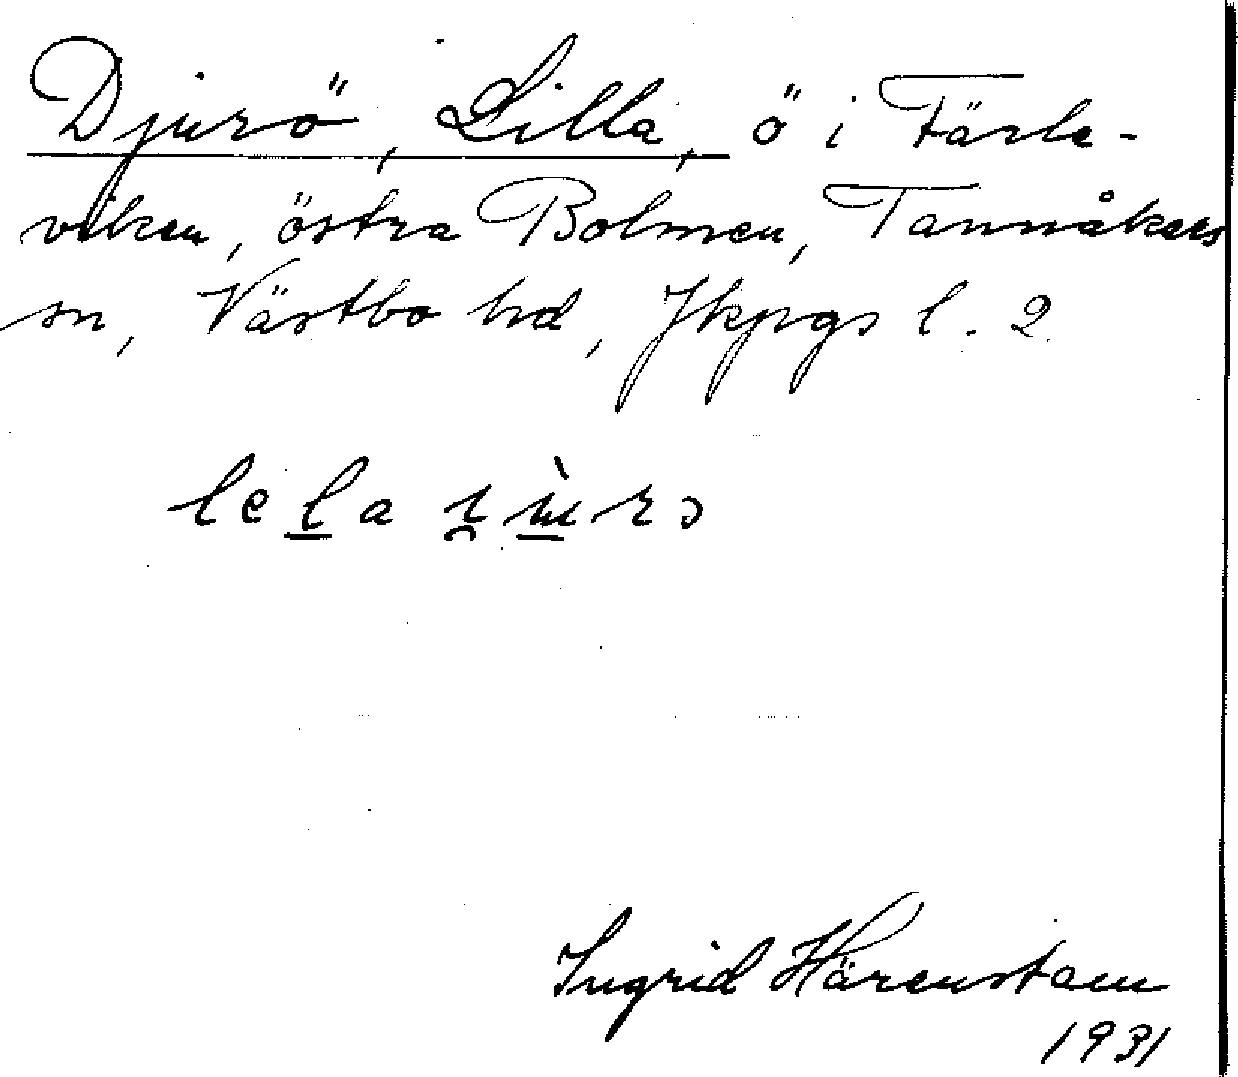 Djurö, Lilla, ö i Färle-
viken, östra Bolmen, Tannåkers
sn, Västbo hd, Jkpgs l. 2
Ingrid Härenstam
1931